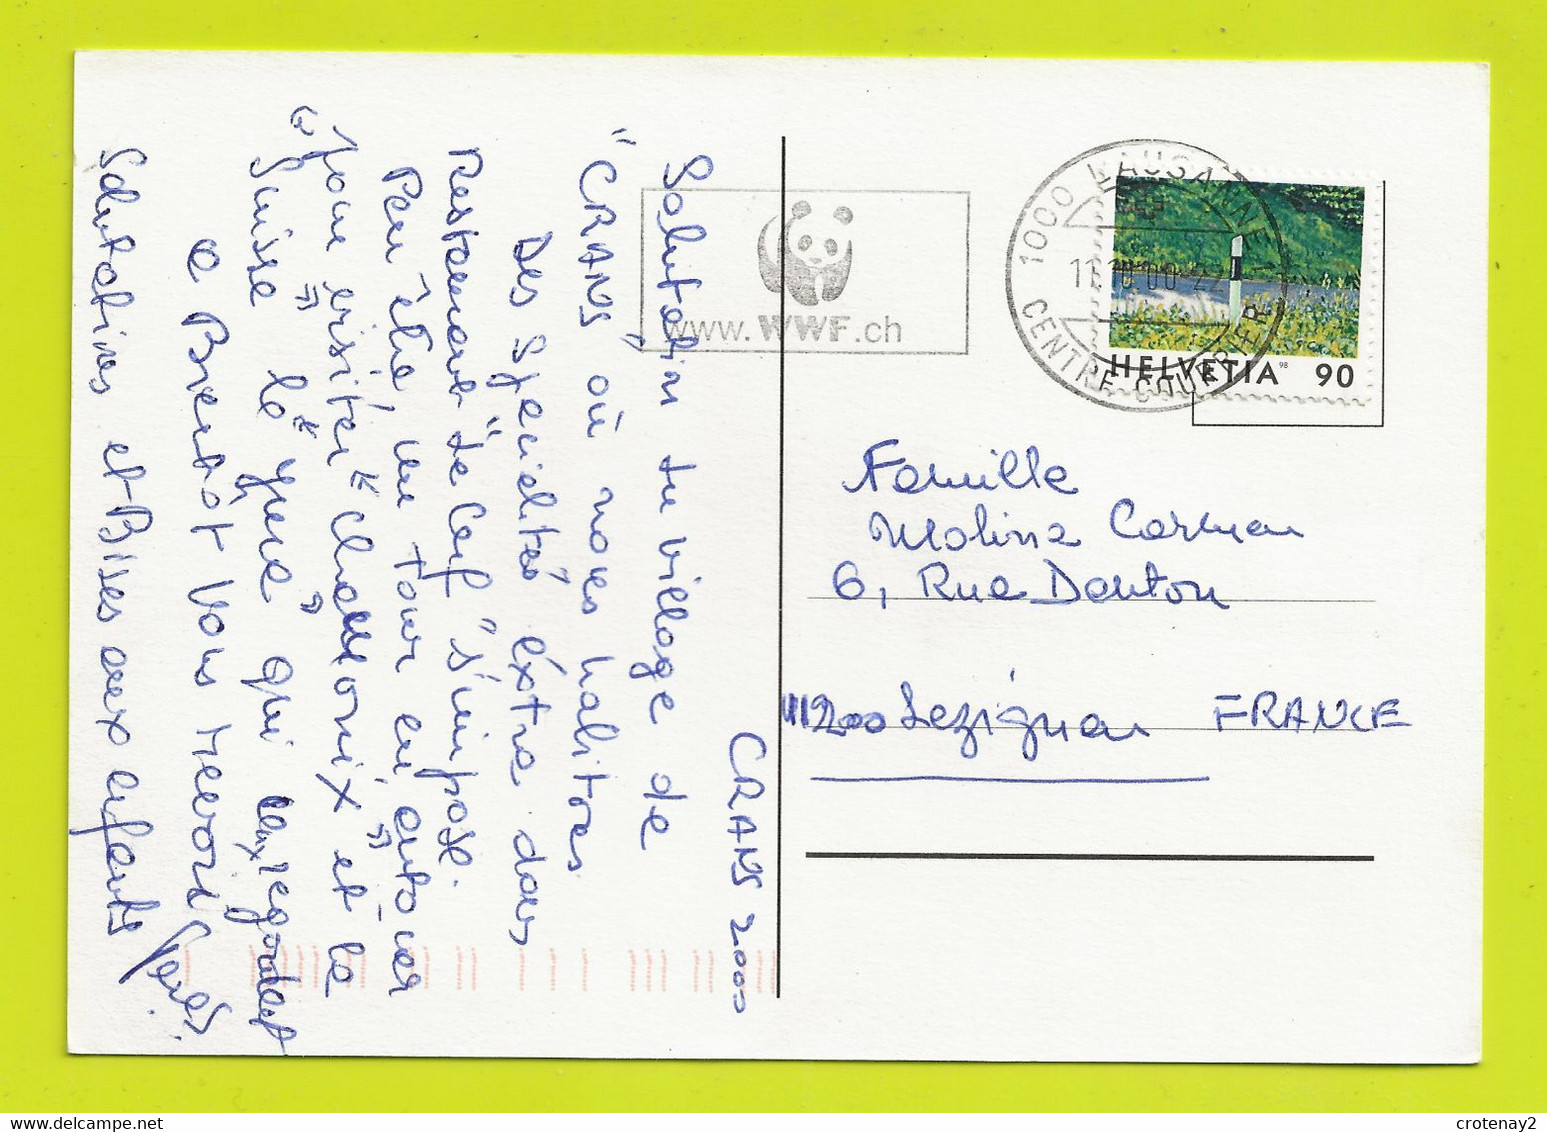 CRANS 2000
Salutation du village de
"CRANS" où nos
Des Spécialités extra dans
Restaurant "Le Cerf" s'impose.
Peu être, un tour en autocar
pour visiter "Chamonix" et la
Suisse la " " qui
a Bientôt Vous revoir
Salutations et Bises aux enfants
www.WWF.ch
1000 LAUSANNE 1
11.10.00-22
CENTRE COURRIER
HELVETIA 98 90
Famille
Molina Carmen
6, Rue Danton
11200 Lezignan FRANCE
crotenay2